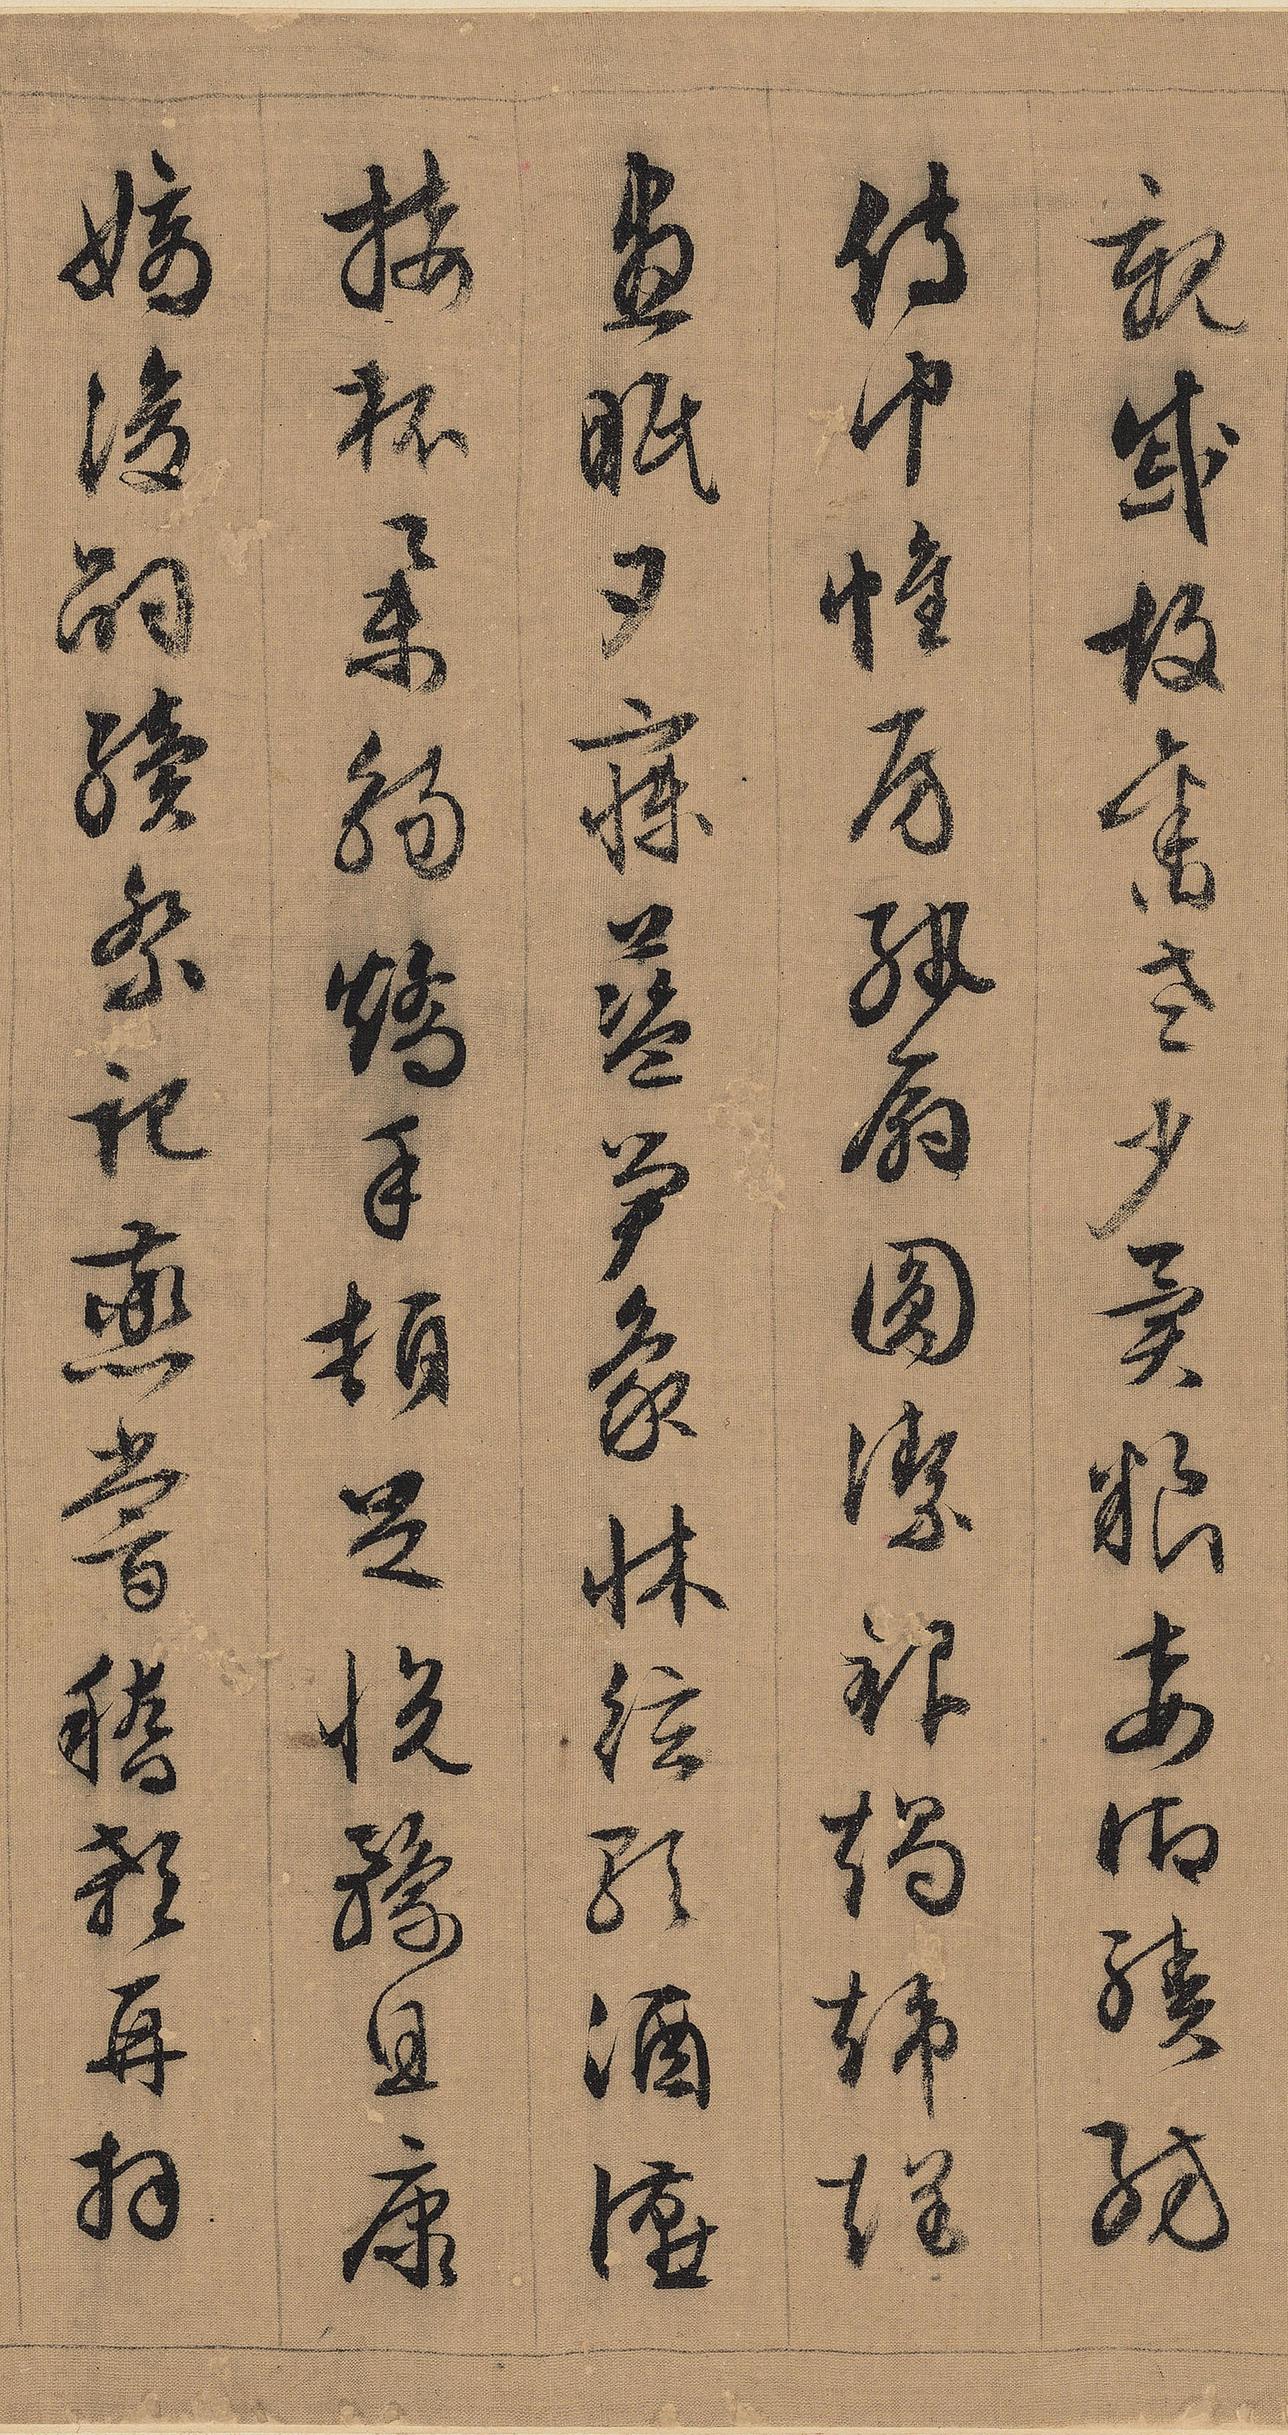 親戚故舊老少異粮妾御績紡
侍巾帷房紈扇圓潔銀燭煒煌
晝眠夕寐藍笋象床絃歌酒讌
接杯舉觴矯手頓足悅豫且康
嫡後嗣續祭祀蒸嘗稽顙再拜